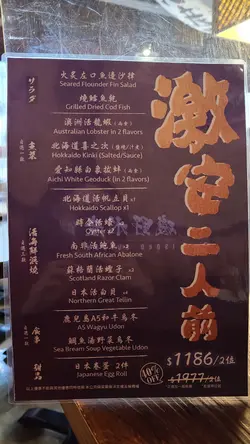 激安二人前
サラダ
火炙左口魚邊沙律
Seared Flounder Fin Salad
燒鱈魚乾
Grilled Dried Cod Fish
澳洲活龍蝦(兩食)
Australian Lobster in 2 flavors
北海道喜之次(鹽燒/汁煮)
Hokkaido Kinki (Salted/Sauce)
愛知縣白象拔蚌(兩食)
Aichi White Geoduck (in 2 flavors)
北海道活帆立貝 x1
Hokkaido Scallop x1
Oyster x2
南非活鮑魚 x2
Fresh South African Abalone
蘇格蘭活蟶子 x2
Scotland Razor Clam
日本活白貝 x2
Northern Great Tellin
鹿兒島A5和牛烏冬
A5 Wagyu Udon
鯛魚湯野菜烏冬
Sea Bream Soup Vegetable Udon
甜品
日本卷蛋 2件
Japanese Egg Roll
40% OFF
$1186/2位
$1977/2位